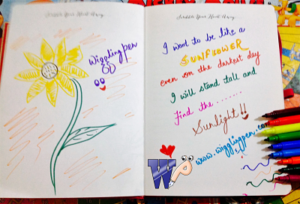 Wigglingpen
I want to be like a
SUNFLOWER
even on the darkest day
I will stand tall and
find the........
Sunlight!!
www.wigglingpen.com